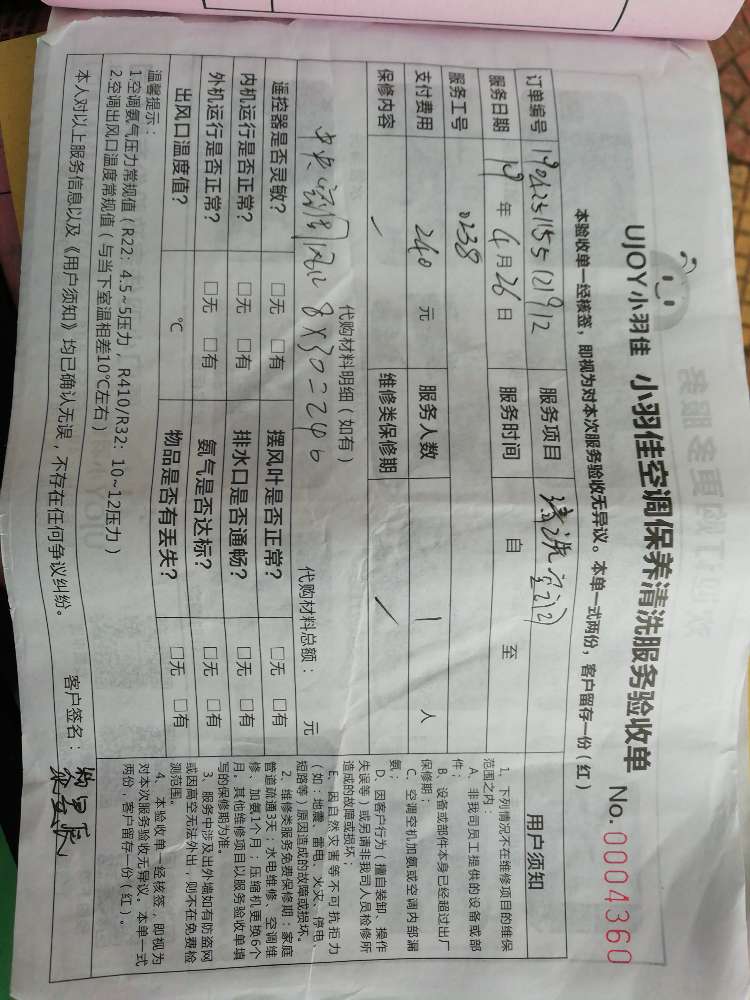 UJOY小羽佳 小羽佳空调保养清洗服务验收单 No. 0004360
本验收单一经核签，即视为对本次服务验收无异议。本单一式两份，客户留存一份（红）
订单编号 1904251155121912 服务项目 清洗空调
服务日期 19年4月26日 服务时间 自 至
服务工号 0238
支付费用 240 元 服务人数 1 人
保修内容 / 维修类保修期 /
代购材料明细（如有） 代购材料总额： 元
中央空调风口 8×30=240
遥控器是否灵敏？ □无 □有 摆风叶是否正常？ □无 □有
内机运行是否正常？ □无 □有 排水口是否通畅？ □无 □有
外机运行是否正常？ □无 □有 氨气是否达标？ □无 □有
出风口温度值？ ℃ 物品是否有丢失？ □无 □有
温馨提示：
1.空调氨气压力常规值（R22：4.5~5压力，R410/R32：10~12压力）
2.空调出风口温度常规值（与当下室温相差10℃左右）
本人对以上服务信息以及《用户须知》均已确认无误，不存在任何争议纠纷。 客户签名：
用户须知
1、下列情况不在维修项目的维保
范围之内：
A、非我司员工提供的设备或部
件；
B、设备或部件本身已经超过出厂
保修期；
C、空调空机加氨或空调内部漏
氨；
D、因客户行为（擅自装卸、操作
失误等）或另请非我司人员检修所
造成的故障或损坏；
E、因自然灾害等不可抗拒力
（如：地震、雷电、火灾、停电、
短路等）原因造成的故障或损坏。
2、维修类服务免费保修期：家庭
管道疏通3天；水电维修、空调维
修、加氨1个月；压缩机更换6个
月。其他维修项目以服务验收单填
写的保修期为准。
3、服务中涉及出外墙如有防盗网
或因高空无法外出，则不在免费检
测范围。
4、本验收单一经核签，即视为
对本次服务验收无异议。本单一式
两份，客户留存一份（红）。